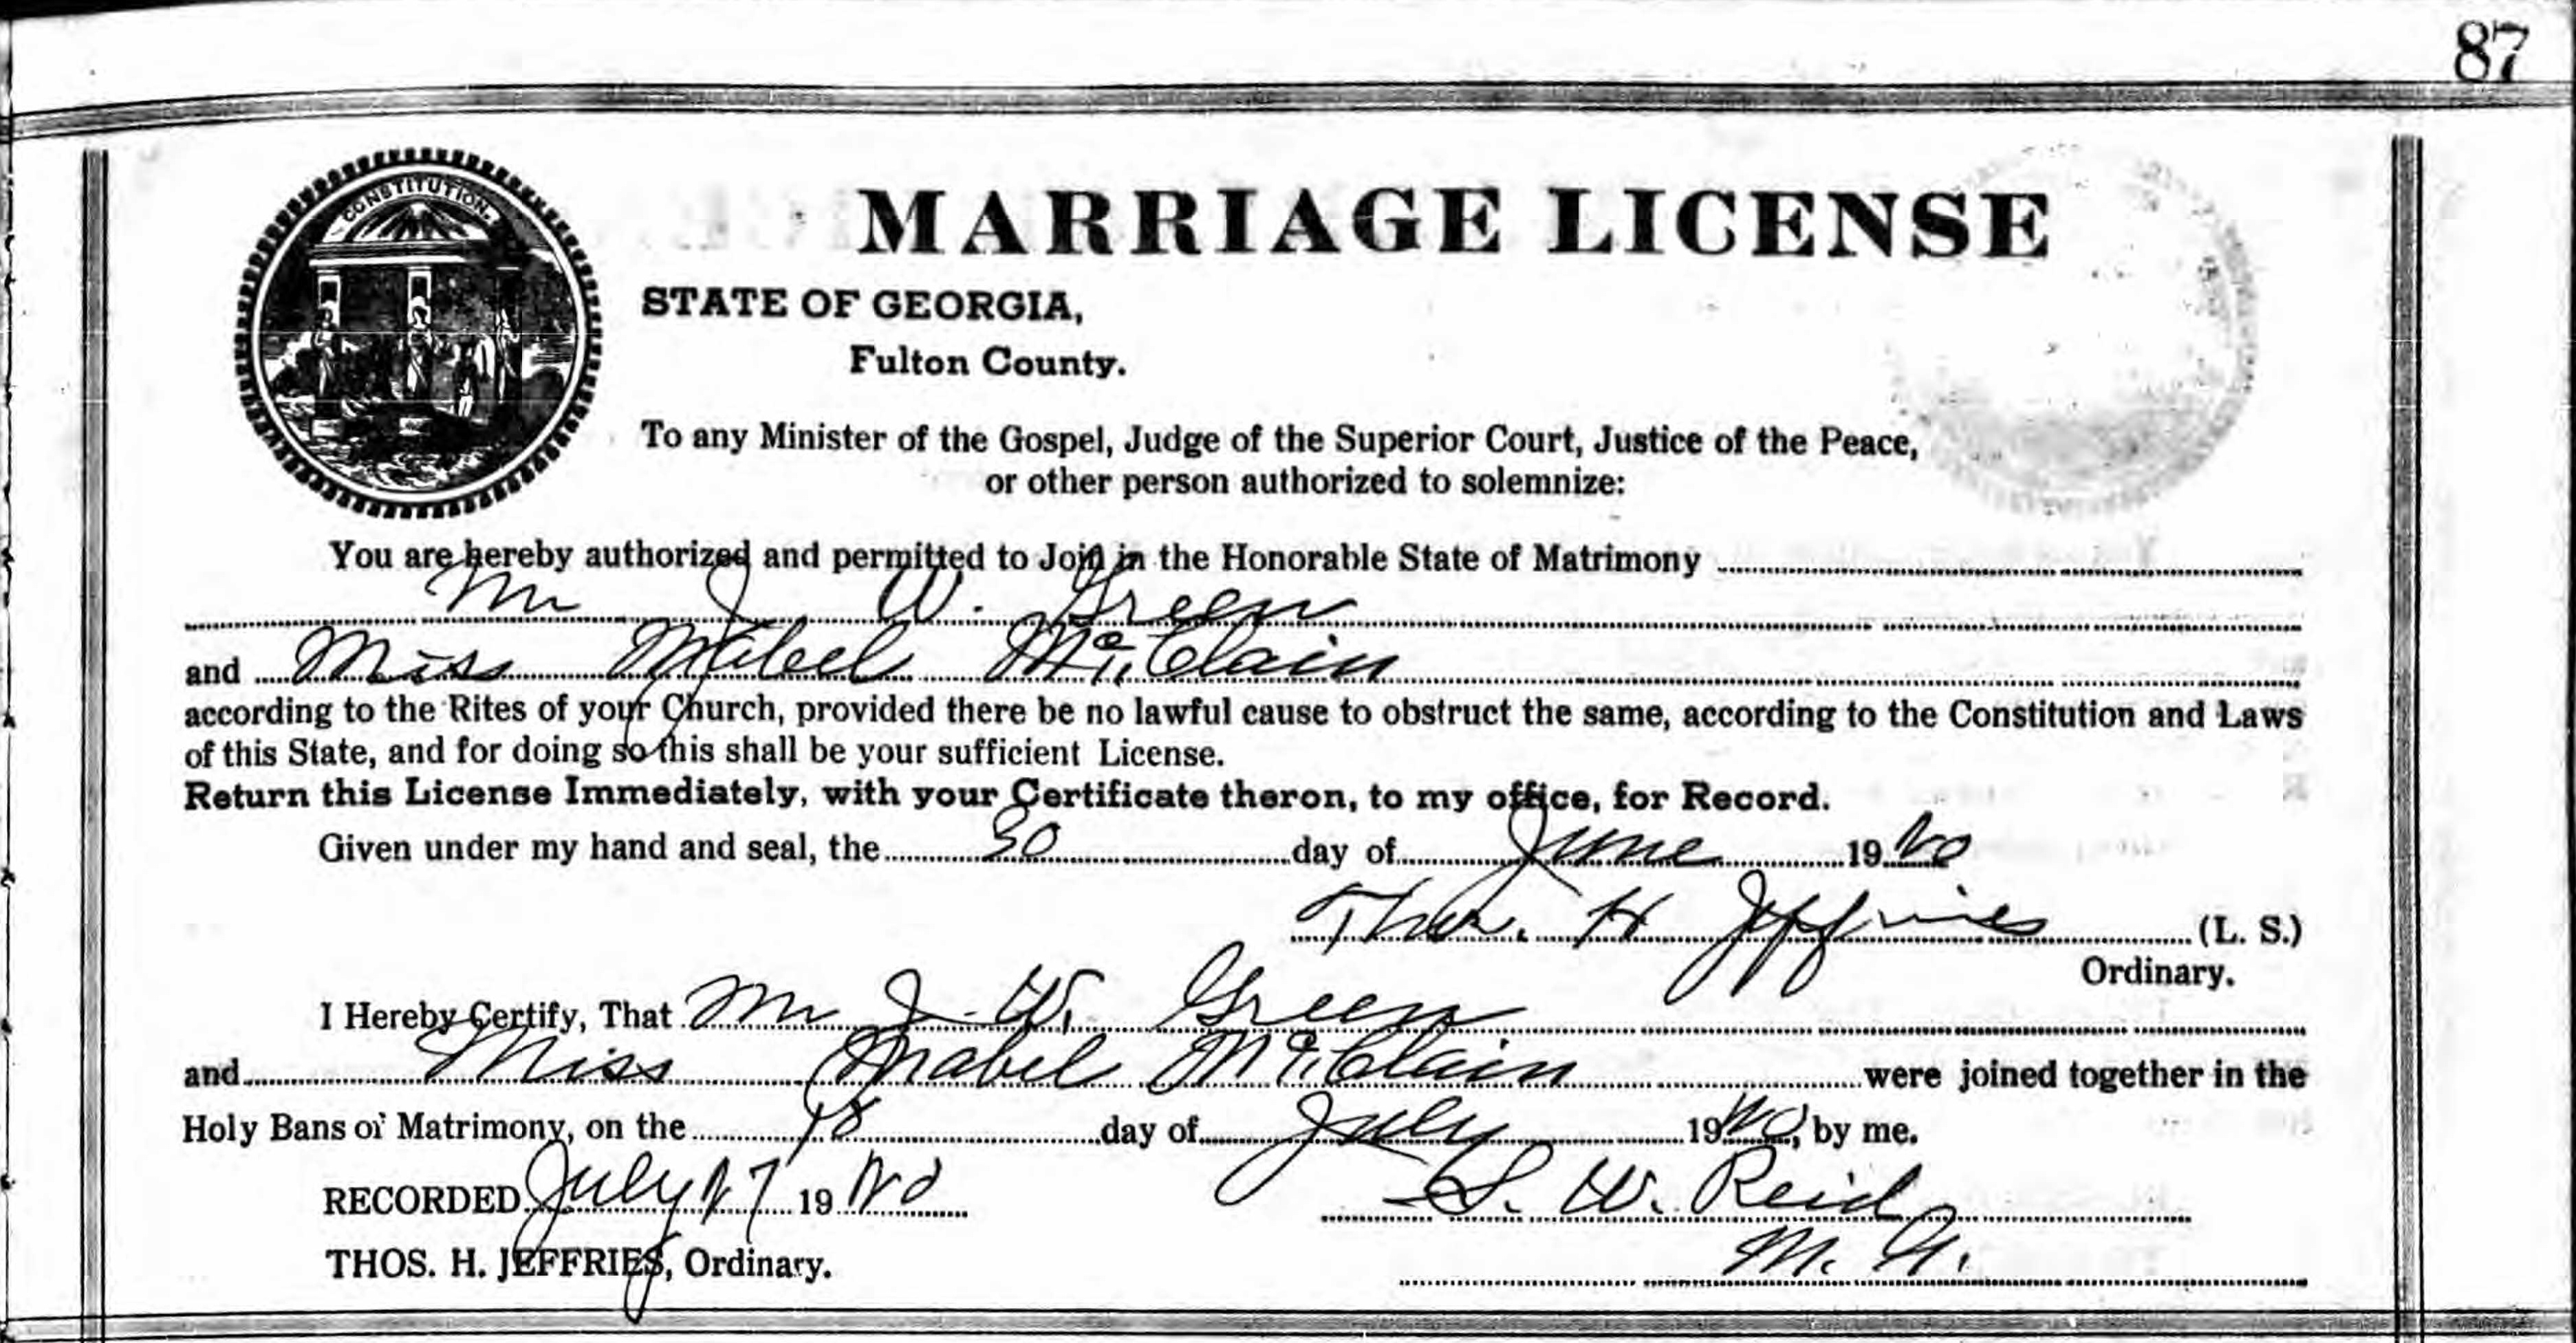 87
CONSTITUTION.
MARRIAGE LICENSE
STATE OF GEORGIA,
Fulton County.
To any Minister of the Gospel, Judge of the Superior Court, Justice of the Peace,
or other person authorized to solemnize:
You are hereby authorized and permitted to Join in the Honorable State of Matrimony
Mr J W. Green
and Miss Mabel McClain
according to the Rites of your Church, provided there be no lawful cause to obstruct the same, according to the Constitution and Laws
of this State, and for doing so this shall be your sufficient License.
Return this License Immediately, with your Certificate theron, to my office, for Record.
Given under my hand and seal, the 30 day of June 1920
Thos. H Jeffries (L. S.)
Ordinary.
I Hereby Certify, That Mr J. W. Green
and Miss Mabel McClain were joined together in the
Holy Bans of Matrimony, on the 18 day of July 1920, by me.
RECORDED July 27 1920 S. W. Reid
THOS. H. JEFFRIES, Ordinary. M. G.